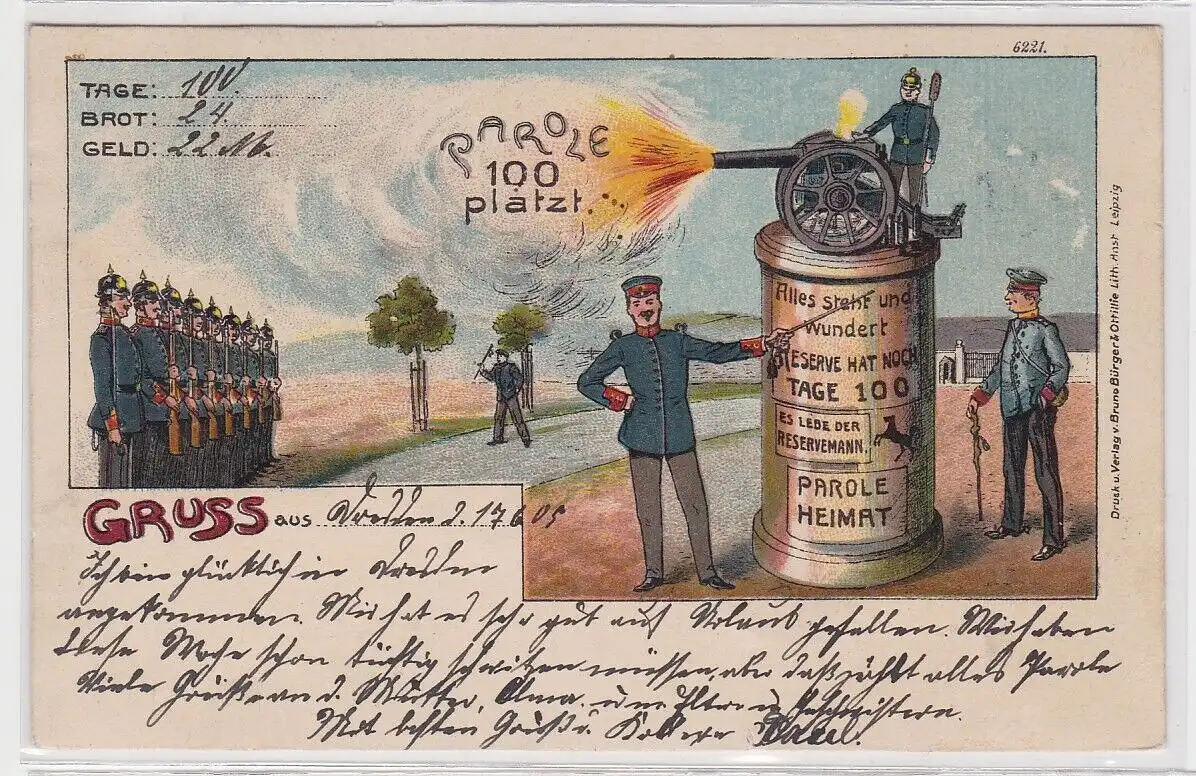 6221.
TAGE: 100.
BROT: 24.
GELD: 22 M.
PAROLE
100
platzt.
Alles steht und
wundert
RESERVE HAT NOCH
TAGE 100
ES LEBE DER
RESERVEMANN.
PAROLE
HEIMAT
Druck u. Verlag v. Bruno Bürger & Ottillie Lith. Anst. Leipzig
GRUSS aus Dresden d. 17.6.05
Ich bin glücklich in Dresden
angekommen. Mir hat es sehr gut auf Urlaub gefallen. Wir haben
diese Woche schon tüchtig schwitzen müssen, aber daß zählt alles Parole
Viele Grüße an d. Mutter, Alma. u. Eltern u. Geschwistern.
Mit besten Gruß u. Paul.